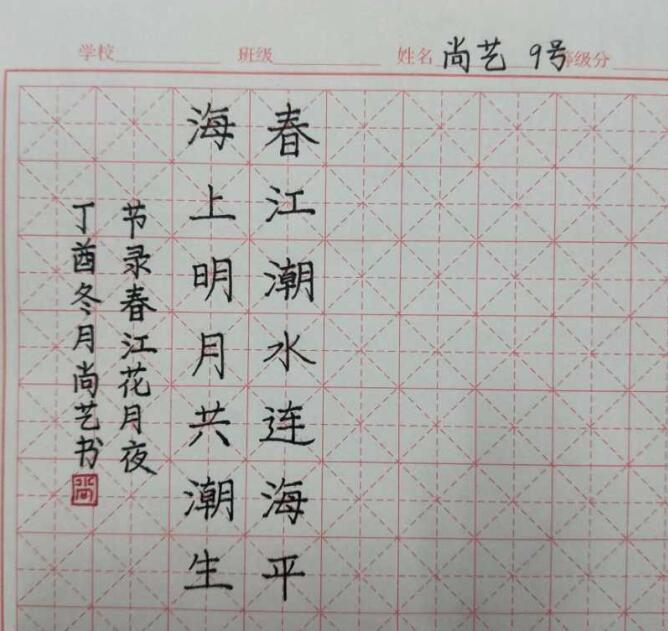 学校 班级 姓名 尚艺 9号 等级分
春江潮水连海平
海上明月共潮生
节录春江花月夜
丁酉冬月尚艺书
尚